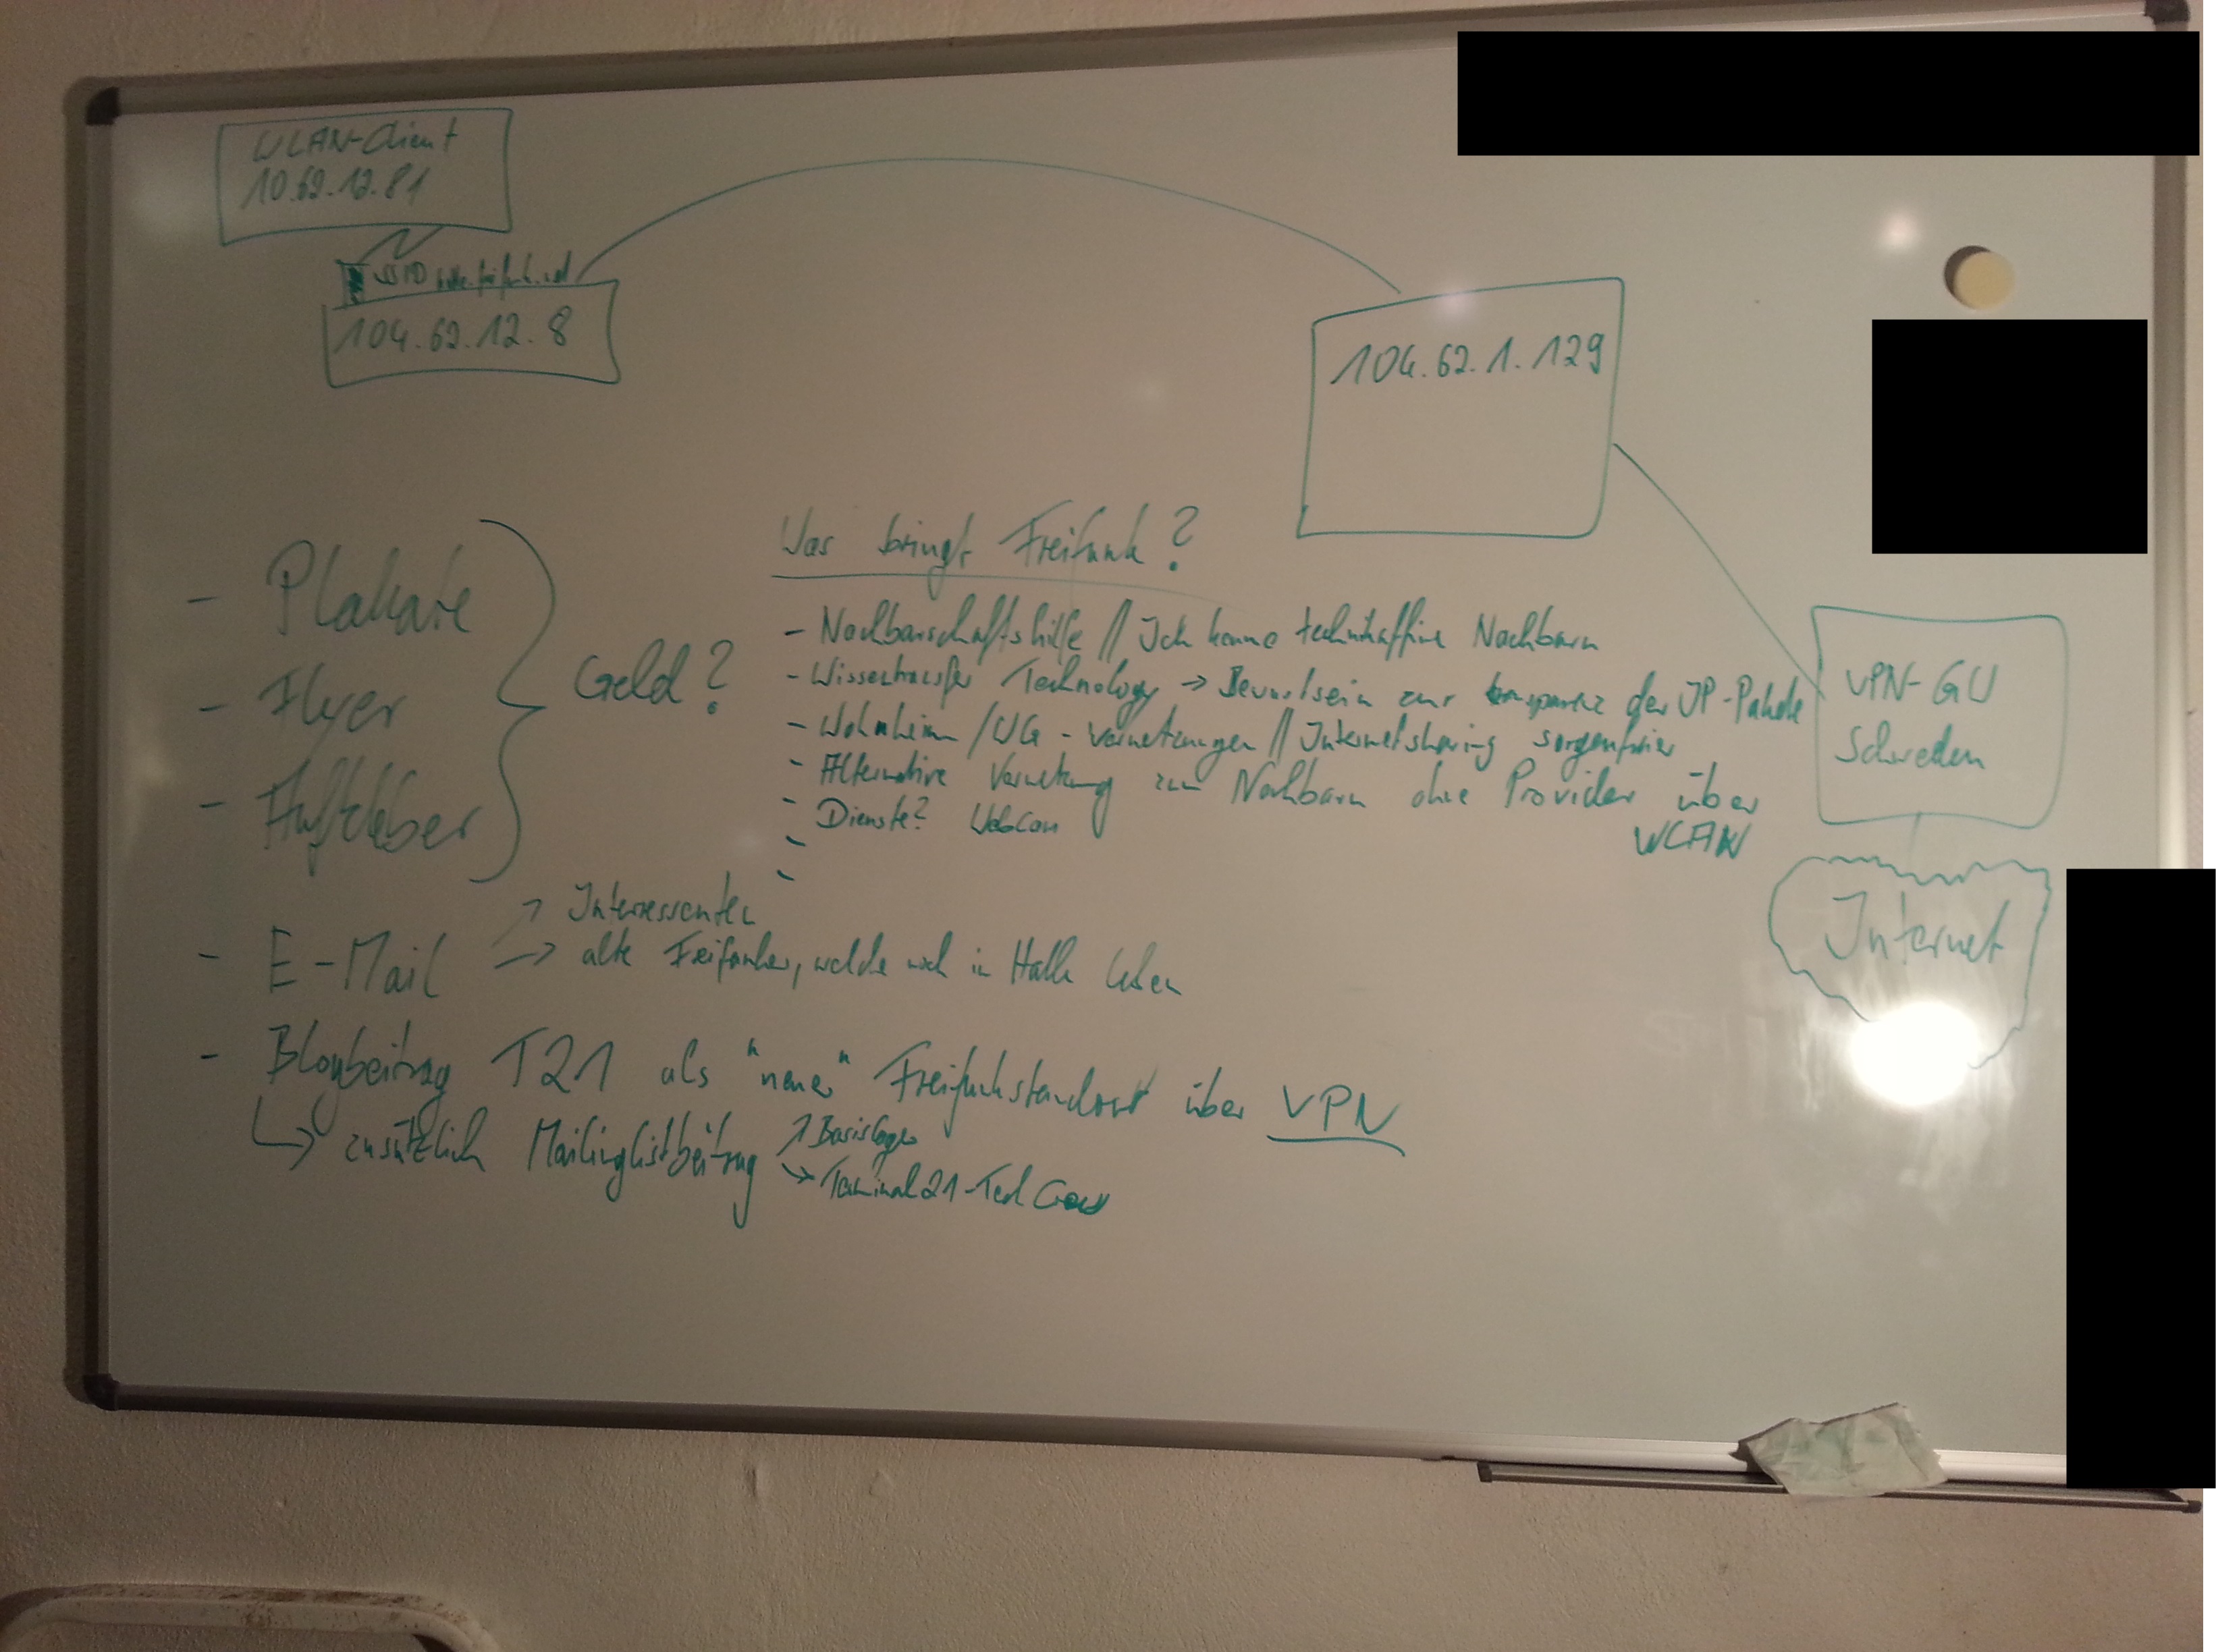 WLAN-Client
10.62.12.81
SSID halle.freifunk.net
104.62.12.8
104.62.1.129
VPN-GW
Schweden
Internet
- Plakate
- Flyer
- Aufkleber
Geld?
Was bringt Freifunk?
- Nachbarschaftshilfe // Ich kenne technikaffine Nachbarn
- Wissenstransfer Technology → Bewusstsein zur transparenz der IP-Pakete
- Wohnheim/WG-Vernetzungen // Internetsharing sorgenfreier
- Alternative Vernetzung zum Nachbarn ohne Provider über
WLAN
- Dienste? WebCam
-
-
- E-Mail
↗ Interessenten
→ alte Freifunker, welche noch in Halle leben
- Blogbeitrag T21 als "neuer" Freifunkstandort über VPN
↳ zusätzlich Mailinglistbeitrag
↗ Basislager
↘ Terminal21-Tech